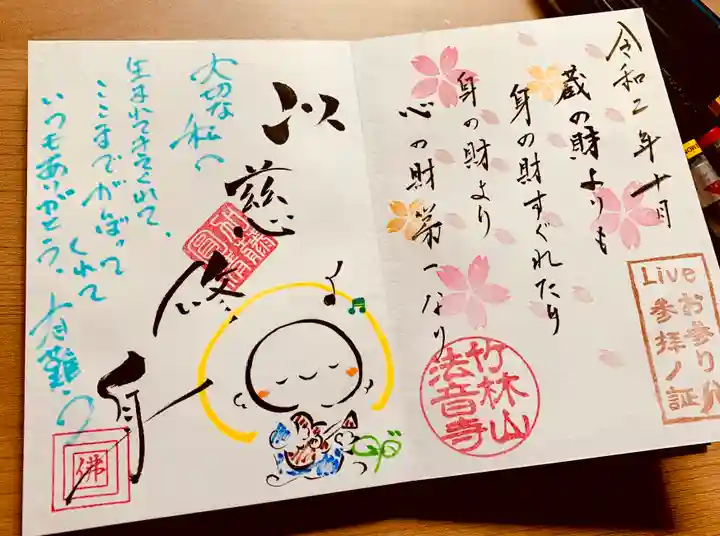 令和二年十月
蔵の財よりも
身の財すぐれたり
身の財より
心の財第一なり
Liveお参り
参拝ノ証
竹林山
法音寺
以慈修身
大切な私へ
生まれてきてくれて、
ここまでがんばって
くれて
いつもありがとう。有難う
佛